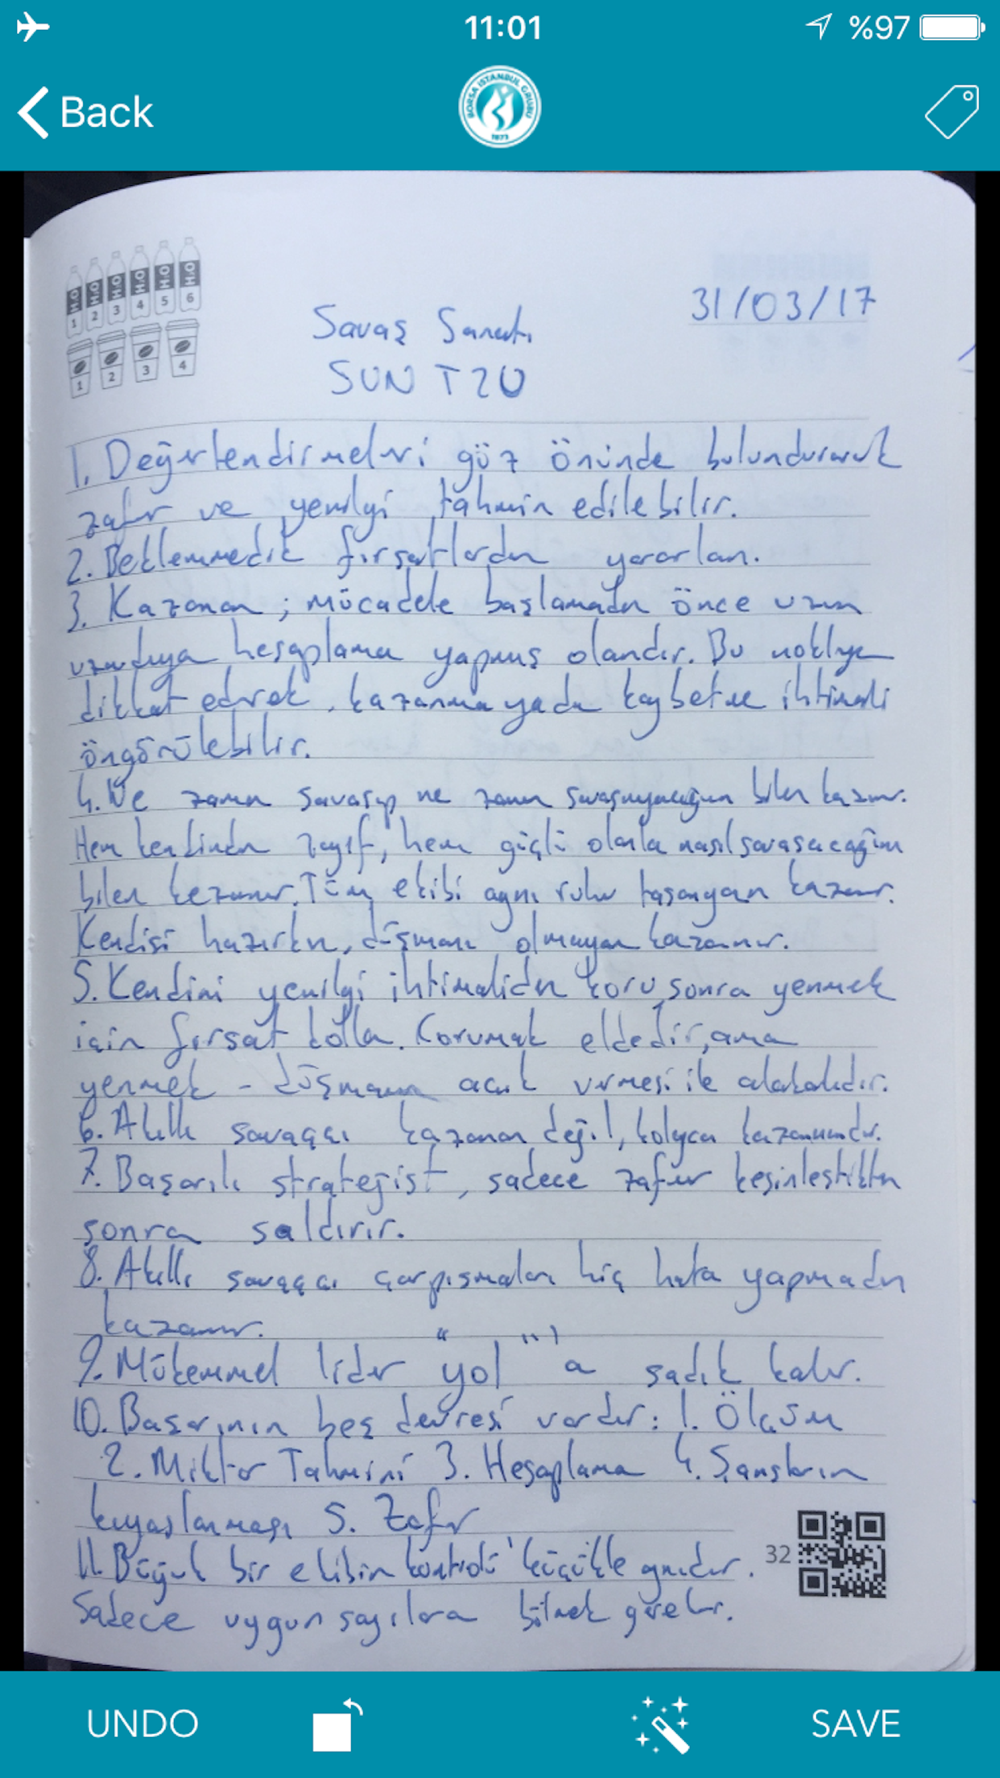 11:01
%97
Back
BORSA İSTANBUL GRUBU
1873
H2O H2O H2O H2O H2O H2O
1 2 3 4 5 6
1 2 3 4
31/03/17
Savaş Sanatı
SUN TZU
1. Değerlendirmeleri göz önünde bulundurarak
zafer ve yenilgi tahmin edilebilir.
2. Beklenmedik fırsatlardan yararlan.
3. Kazanan; mücadele başlamadan önce uzun
uzadıya hesaplama yapmış olandır. Bu noktaya
dikkat ederek, kazanma yada kaybetme ihtimali
öngörülebilir.
4. Ne zaman savaşıp ne zaman savaşmayacağını bilen kazanır.
Hem kendinden zayıf, hem güçlü olanla nasıl savaşacağını
bilen kazanır. Tüm ekibi aynı ruhu taşıyan kazanır.
Kendisi hazırken, düşmanı olmayan kazanır.
5. Kendini yenilgi ihtimaliden koru, sonra yenmek
için fırsat kolla. Korumak eldedir, ama
yenmek - düşmanın açık vermesi ile alakalıdır.
6. Akıllı savaşçı kazanan değil, kolayca kazanandır.
7. Başarılı stratejist, sadece zafer kesinleştikten
sonra saldırır.
8. Akıllı savaşçı çarpışmaları hiç hata yapmadan
kazanır.
9. Mükemmel lider "yol"'a sadık kalır.
10. Başarının beş devresi vardır: 1. Ölçüm
2. Miktar Tahmini 3. Hesaplama 4. Şansların
kıyaslanması 5. Zafer
11. Büyük bir ekibin kontrolü küçükle aynıdır.
32
Sadece uygun sayılara bölmek gerekir.
UNDO
SAVE